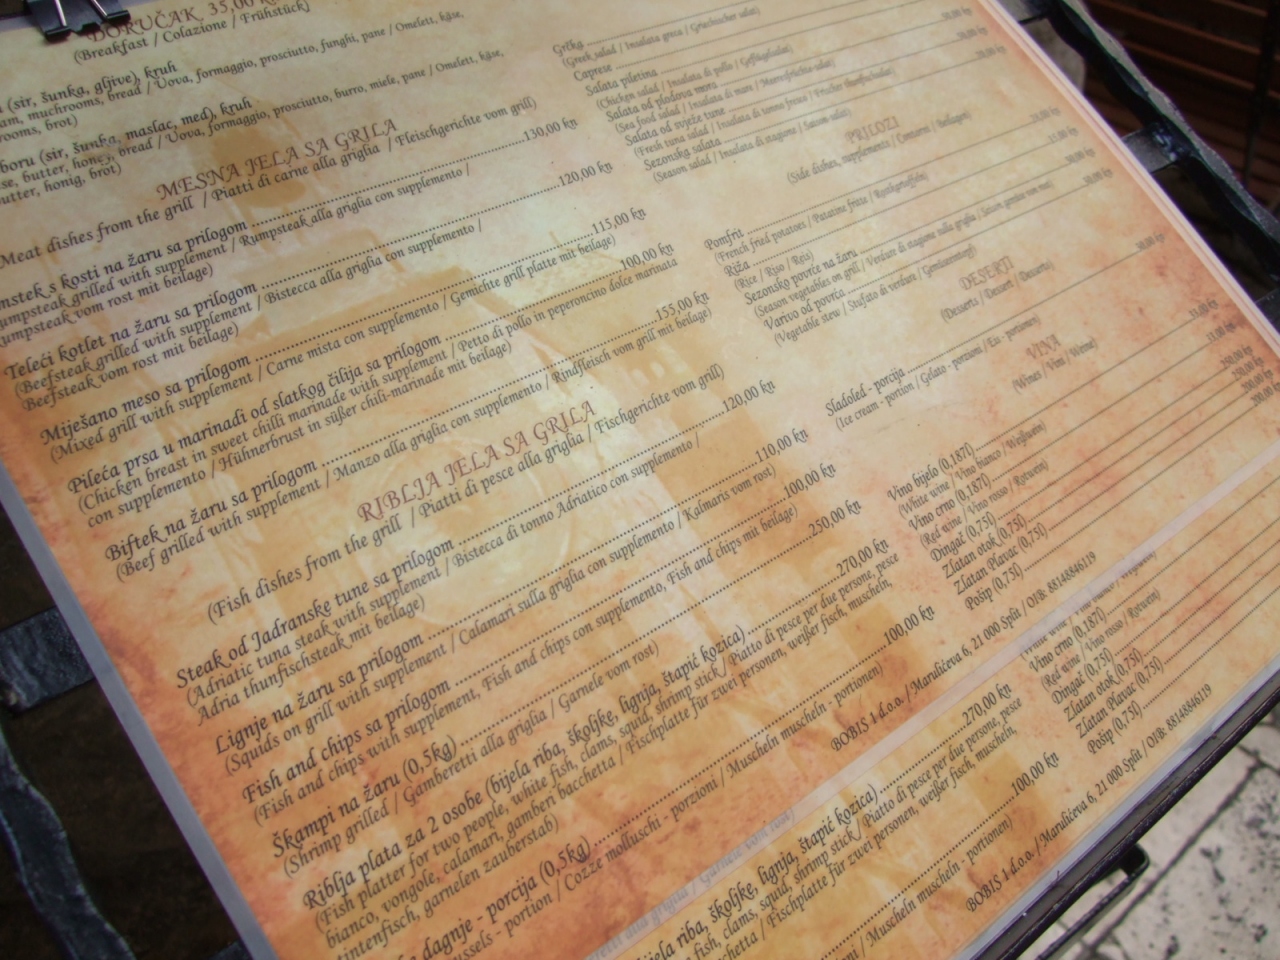 DORUČAK 35,00
(Breakfast / Colazione / Frühstück)
(sir, šunka, gljive), kruh
muchrooms, bread / Uova, formaggio, prosciutto, funghi, pane / Omelett, käse,
brot)
boru (sir, šunka, maslac, med), kruh
butter, honey, bread / Uova, formaggio, prosciutto, burro, miele, pane / Omelett, käse,
butter, honig, brot)
MESNA JELA SA GRILA
Meat dishes from the grill / Piatti di carne alla griglia / Fleischgerichte vom grill)
s kosti na žaru sa prilogom 130,00 kn
grilled with supplement / Rumpsteak alla griglia con supplemento /
vom rost mit beilage)
Teleći kotlet na žaru sa prilogom 120,00 kn
(Beefsteak grilled with supplement / Bistecca alla griglia con supplemento /
Beefsteak vom rost mit beilage)
Miješano meso sa prilogom 115,00 kn
(Mixed grill with supplement / Carne mista con supplemento / Gemichte grill platte mit beilage)
Pileća prsa u marinadi od slatkog čilija sa prilogom 100,00 kn
(Chicken breast in sweet chilli marinade with supplement / Petto di pollo in peperoncino dolce marinata
con supplemento / Hühnerbrust in süßer chili-marinade mit beilage)
Biftek na žaru sa prilogom 155,00 kn
(Beef grilled with supplement / Manzo alla griglia con supplemento / Rindfleisch vom grill mit beilage)
RIBLJA JELA SA GRILA
(Fish dishes from the grill / Piatti di pesce alla griglia / Fischgerichte vom grill)
Steak od Jadranske tune sa prilogom 120,00 kn
(Adriatic tuna steak with supplement / Bistecca di tonno Adriatico con supplemento /
Adria thunfischsteak mit beilage)
Lignje na žaru sa prilogom 110,00 kn
(Squids on grill with supplement / Calamari sulla griglia con supplemento / Kalmaris vom rost)
Fish and chips sa prilogom 100,00 kn
(Fish and chips with supplement, Fish and chips con supplemento, Fish and chips mit beilage)
Škampi na žaru (0,5kg) 250,00 kn
(Shrimp grilled / Gamberetti alla griglia / Garnele vom rost)
Riblja plata za 2 osobe (bijela riba, školjke, lignja, štapić kozica) 270,00 kn
(Fish platter for two people, white fish, clams, squid, shrimp stick / Piatto di pesce per due persone, pesce
bianco, vongole, calamari, gamberi bacchetta / Fischplatte für zwei personen, weißer fisch, muscheln,
tintenfisch, garnelen zauberstab)
dagnje - porcija (0,5kg) 100,00 kn
- portion / Cozze molluschi - porzioni / Muscheln muscheln - portionen)
Grčka
(Greek salad / Insalata greca / Griechischer salat)
Caprese
Salata piletina
(Chicken salad / Insalata di pollo / Geflügelsalat)
Salata od plodova mora
(Sea food salad / Insalata di mare / Meeresfrüchte salat)
Salata od svježe tune
(Fresh tuna salad / Insalata di tonno fresco / Frischer thunfischsalat)
Sezonska salata
(Season salad / Insalata di stagione / Saison salat)
PRILOZI
(Side dishes, supplements / Contorni / beilagen)
Pomfrit
(French fried potatoes / Patatine fritte / Röstkartoffeln)
Riža
(Rice / Riso / Reis)
Sezonsko povrće na žaru
(Season vegetables on grill / Verdure di stagione sulla griglia / Saison gemüse vom rost)
Varivo od povrća
(Vegetable stew / Stufato di verdure / Gemüseeintopf)
DESERTI
(Desserts / Dessert / Desserts)
Sladoled - porcija
(Ice cream - portion / Gelato - porzioni / Eis - portionen)
VINA
(Wines / Vini / Weine)
Vino bijelo (0,187l)
(White wine / Vino bianco / Weißwein)
Vino crno (0,187l)
(Red wine / Vino rosso / Rotwein)
Dingač (0,75l)
Zlatan otok (0,75l)
Zlatan Plavac (0,75l)
Pošip (0,75l)
BOBIS 1 d.o.o. / Marulićeva 6, 21 000 Split / OIB: 88148846119
riba, školjke, lignja, štapić kozica) 270,00 kn
fish, clams, squid, shrimp stick / Piatto di pesce per due persone, pesce
/ Fischplatte für zwei personen, weißer fisch, muscheln,
100,00 kn
/ Muscheln muscheln - portionen)
Vino crno (0,187l)
(Red wine / Vino rosso / Rotwein)
Dingač (0,75l)
Zlatan otok (0,75l)
Zlatan Plavac (0,75l)
Pošip (0,75l)
BOBIS 1 d.o.o. / Marulićeva 6, 21 000 Split / OIB: 88148846119